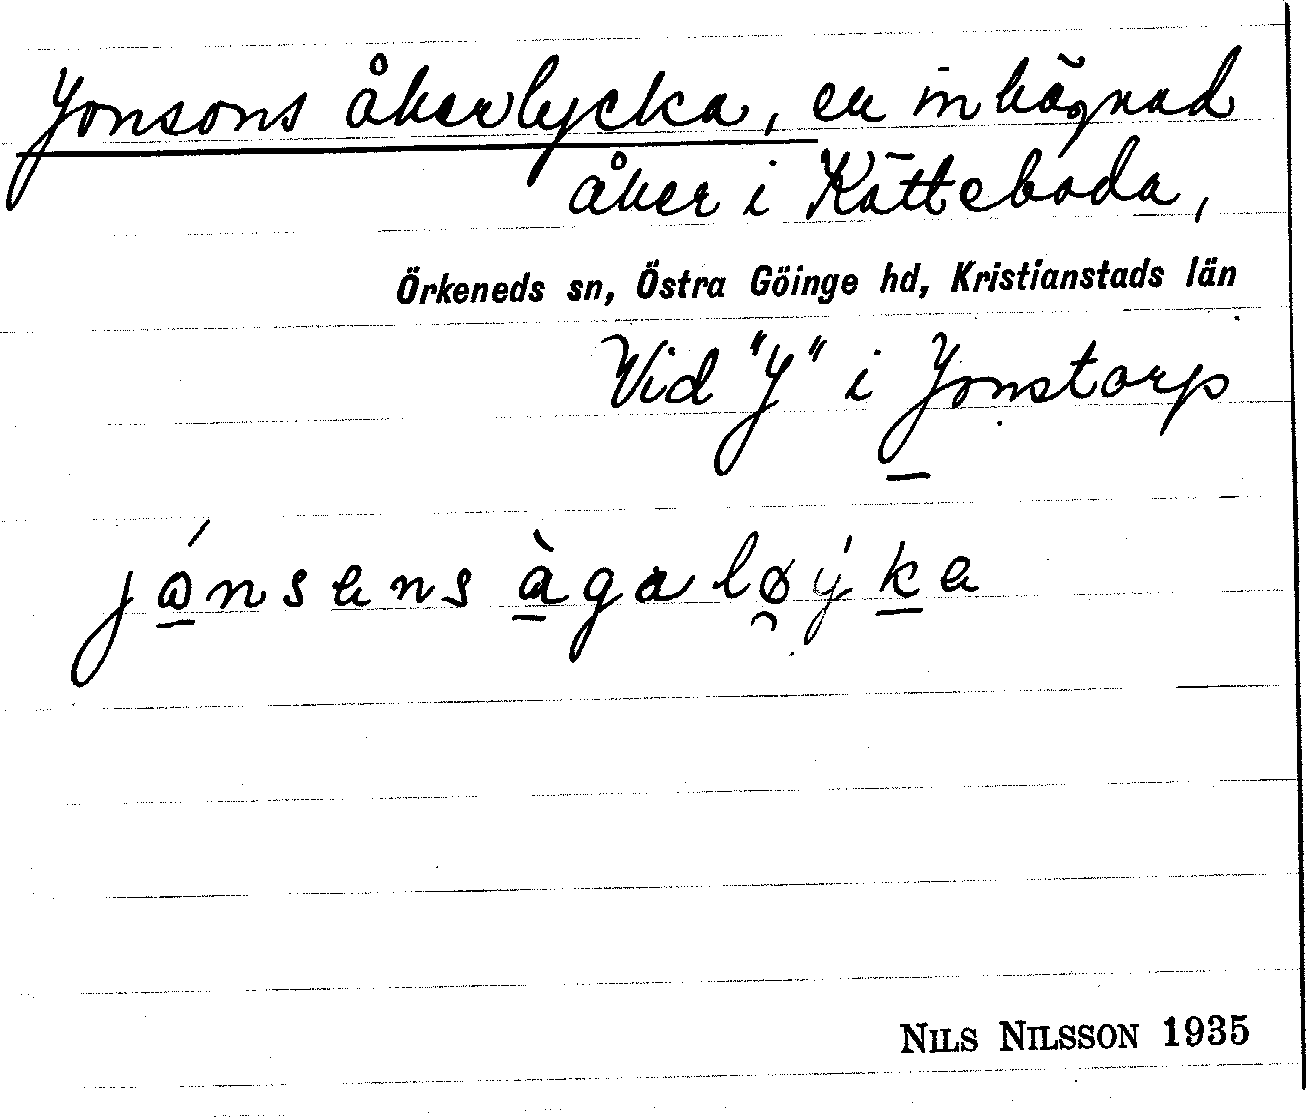 Jonsons åkerlycka, en inhägnad
åker i Kätteboda,
Örkeneds sn, Östra Göinge hd, Kristianstads län
Vid "J" i Jonstorp
jónsens àgaløýka
NILS NILSSON 1935